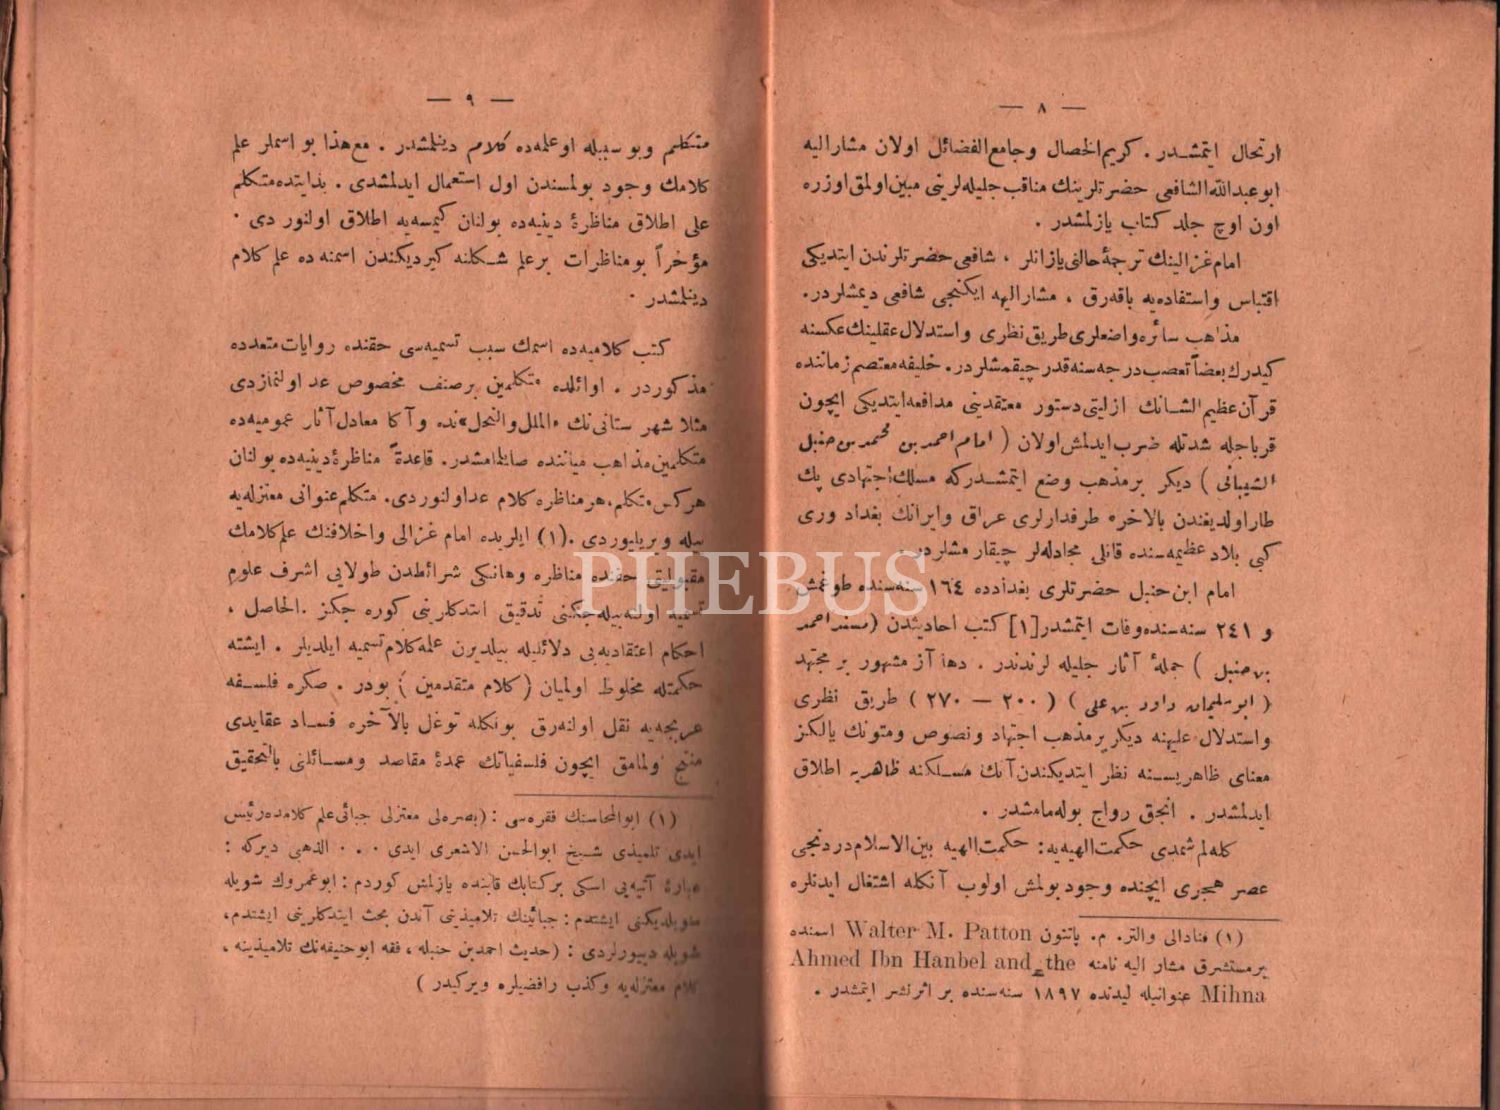 — ٨ —
ارتحال ايتمشدر . كريم الخصال وجامع الفضائل اولان مشاراليه
ابوعبدالله الشافعى حضرتلرينك مناقب جليله لرينى مبين اولمق اوزره
اون اوچ جلد كتاب يازلمشدر .
امام غزالينك ترجمهٔ حالنى يازانلر ، شافعى حضرتلرندن ايتديكى
اقتباس واستفاده يه باقه رق ، مشاراليهه ايكنجى شافعى ديمشلردر.
مذاهب سائره واضعلرى طريق نظرى واستدلال عقلينك عكسنه
كيدرك بعضاً تعصب درجه سنه قدر چيقمشلردر. خليفه معتصم زماننده
قرآن عظيم الشانك ازليتى دستور معتقدينى مدافعه ايتديكى ايچون
قرباجله شدتله ضرب ايدلمش اولان ( امام احمد بن محمد بن حنبل
الشيبانى ) ديكر برمذهب وضع ايتمشدركه مسلك اجتهادى پك
طار اولديغندن بالاخره طرفدارلرى عراق وايرانك بغداد ورى
كبى بلاد عظيمه سنده قانلى مجادله لر چيقارمشلردر.
امام ابن حنبل حضرتلرى بغدادده ١٦٤ سنه سنده طوغمش
و ٢٤١ سنه سنده وفات ايتمشدر[١] كتب احاديثدن (مسند احمد
بن حنبل ) جملهٔ آثار جليله لرندندر . دها آز مشهور بر مجتهد
( ابو سليمان داود بن على ) ( ٢٠٠ — ٢٧٠ ) طريق نظرى
واستدلال عليهنه ديكر برمذهب اجتهاد ونصوص ومتونك يالكز
معناى ظاهريسنه نظر ايتديكندن آنك مسلكنه ظاهريه اطلاق
ايدلمشدر . انجق رواج بوله مامشدر .
كله لم شمدى حكمت الهيه يه : حكمت الهيه بين الاسلام دردنجى
عصر هجرى ايچنده وجود بولمش اولوب آنكله اشتغال ايدنلره
(١) قنادالى والتر. م. پاتتون Walter M. Patton اسمنده
برمستشرق مشار اليه نامنه Ahmed Ibn Hanbel and the
Mihna عنوانيله ليدنده ١٨٩٧ سنه سنده بر اثر نشر ايتمشدر .
— ٩ —
متكلم وبو سببله او علمه ده كلام دينلمشدر . مع هذا بو اسملر علم
كلامك وجود بولمسندن اول استعمال ايدلمشدى . بدايتده متكلم
على اطلاق مناظرهٔ دينيه ده بولنان كيمسه يه اطلاق اولنور دى .
مؤخراً بو مناظرات برعلم شكلنه كيرديكندن اسمنه ده علم كلام
دينلمشدر .
كتب كلاميه ده اسمك سبب تسميه سى حقنده روايات متعدده
مذكوردر . اوائلده متكلمين برصنف مخصوص عد اولنمازدى
مثلا شهر ستانى نك «الملل والنحل»نده وآكا معادل آثار عموميه ده
متكلمين مذاهب مياننده صانلمامشدر. قاعدةً مناظرهٔ دينيه ده بولنان
هركس متكلم، هرمناظره كلام عد اولنوردى. متكلم عنوانى معتزله يه
بيله ويريليوردى .(١) ايلريده امام غزالى واخلافنك علم كلامك
مقبوليتى حقنده مناظره وهانكى شرائطدن طولايى اشرف علوم
تسميه اولنه بيله جكنى تدقيق ايتدكلرينى كوره جكز .الحاصل ،
احكام اعتقاديه يى دلائليله بيلديرن علمه كلام تسميه ايلديلر . ايشته
حكمتله مخلوط اولميان (كلام متقدمين ) بودر . صكره فلسفه
عربجه يه نقل اولنه رق بونكله توغل بالآخره فساد عقايدى
منتج اولمامق ايچون فلسفياتك عمدهٔ مقاصد ومسائلنى بالتحقيق
(١) ابوالمحاسنك فقره سى : (بصره لى معتزلى جبائى علم كلامده رئيس
ايدى تلميذى شيخ ابوالحسن الاشعرى ايدى . . . الذهبى ديركه :
عبارهٔ آتيه يى اسكى بركتابك قابنده يازلمش كوردم : ابوعمروك شويله
سويلديكنى ايشتدم : جبائينك تلاميذينى آندن بحث ايتدكلرينى ايشتدم،
شويله دييورلردى : (حديث احمد بن حنبله ، فقه ابوحنيفه نك تلاميذينه ،
كلام معتزله يه وكذب رافضيلره ويركيدر )
PHEBUS